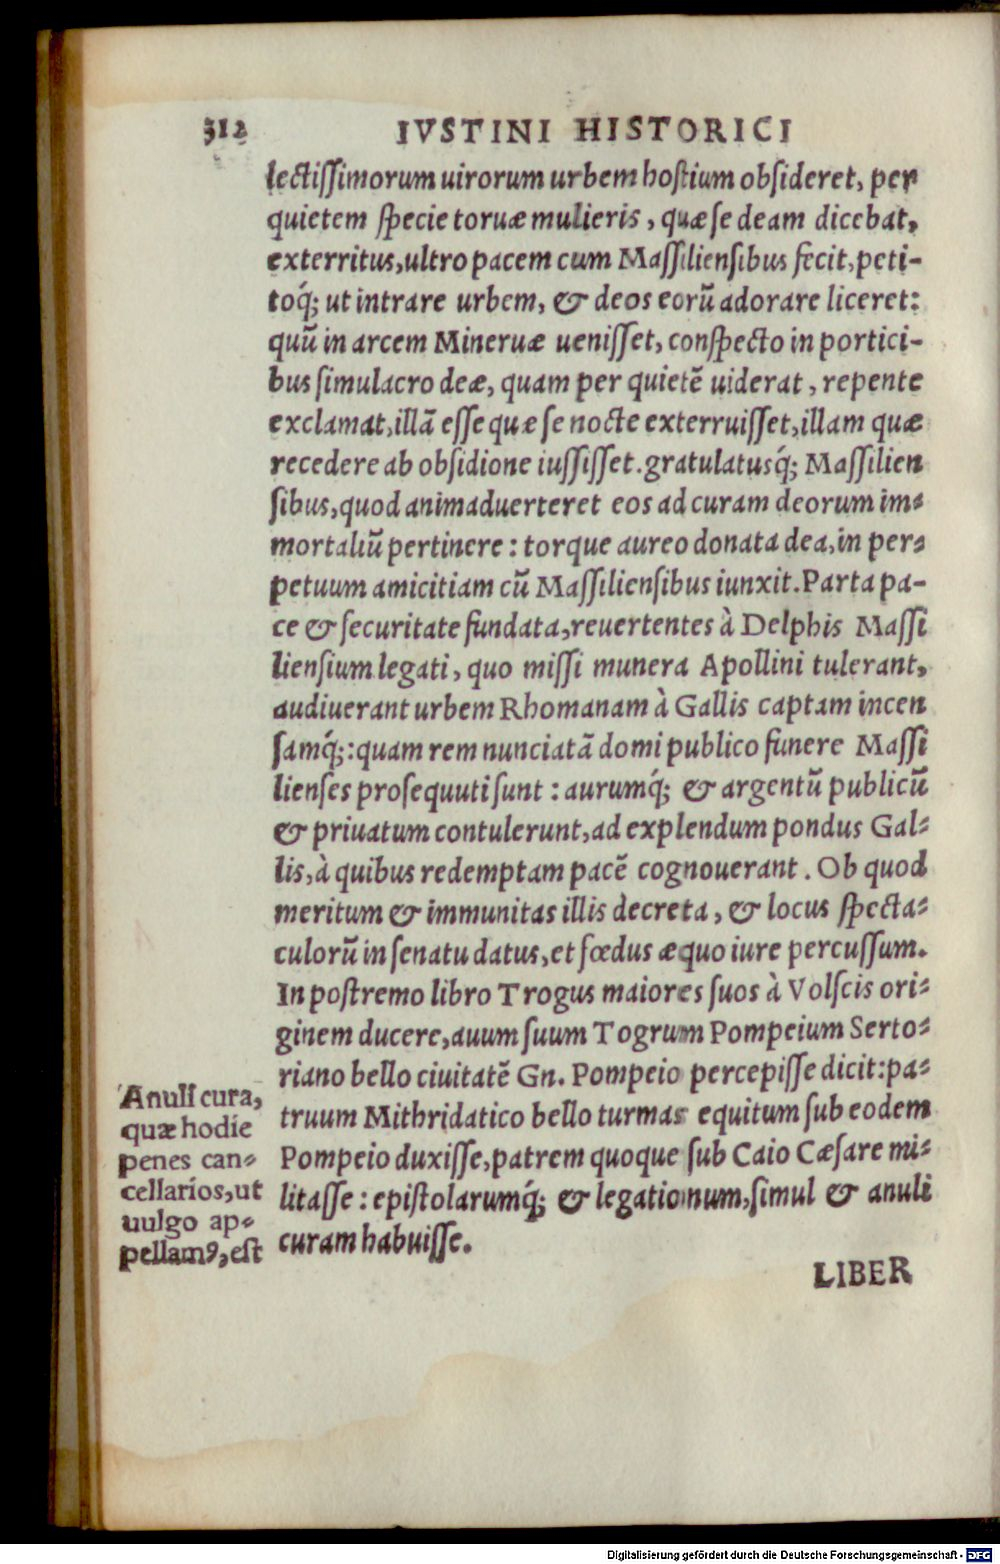 312 IVSTINI HISTORICI
lectissimorum uirorum urbem hostium obsideret, per
quietem specie toruæ mulieris, quæ se deam dicebat,
exterritus, ultro pacem cum Massiliensibus fecit, peti-
toq́; ut intrare urbem, & deos eorũ adorare liceret:
quũ in arcem Mineruæ uenisset, conspecto in portici-
bus simulacro deæ, quam per quietẽ uiderat, repente
exclamat, illã esse quæ se nocte exterruisset, illam quæ
recedere ab obsidione iussisset. gratulatusq́; Massilien
sibus, quod animaduerteret eos ad curam deorum im-
mortaliũ pertinere: torque aureo donata dea, in per-
petuum amicitiam cũ Massiliensibus iunxit. Parta pa-
ce & securitate fundata, reuertentes à Delphis Massi
liensium legati, quo missi munera Apollini tulerant,
audiuerant urbem Rhomanam à Gallis captam incen
samq́;: quam rem nunciatã domi publico funere Massi
lienses prosequuti sunt: aurumq́; & argentũ publicũ
& priuatum contulerunt, ad explendum pondus Gal-
lis, à quibus redemptam pacẽ cognouerant. Ob quod
meritum & immunitas illis decreta, & locus specta-
culorũ in senatu datus, et fœdus æquo iure percussum.
In postremo libro Trogus maiores suos à Volscis ori-
ginem ducere, auum suum Togrum Pompeium Serto-
riano bello ciuitatẽ Gn. Pompeio percepisse dicit: pa-
truum Mithridatico bello turmas equitum sub eodem
Pompeio duxisse, patrem quoque sub Caio Cæsare mi-
litasse: epistolarumq́; & legationum, simul & anuli
curam habuisse.
Anuli cura,
quæ hodie
penes can-
cellarios, ut
uulgo ap-
pellamꝰ, est
LIBER
Digitalisierung gefördert durch die Deutsche Forschungsgemeinschaft - DFG